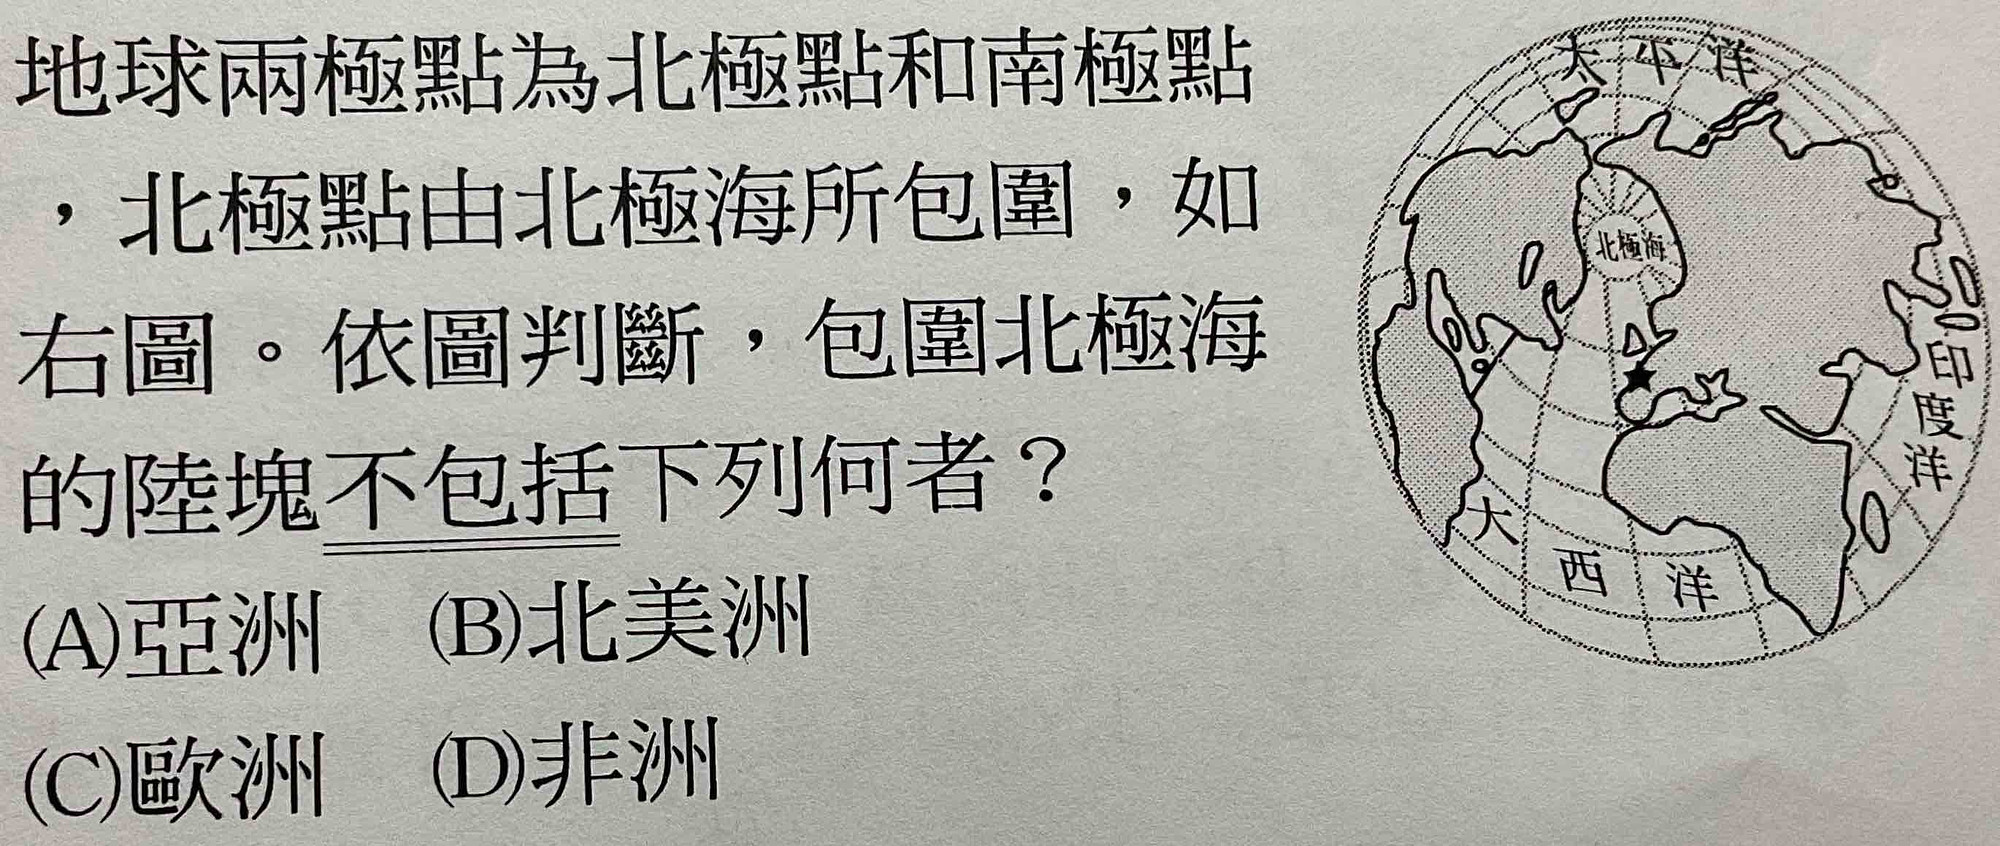 地球兩極點為北極點和南極點
，北極點由北極海所包圍，如
右圖。依圖判斷，包圍北極海
的陸塊不包括下列何者？
(A)亞洲 (B)北美洲
(C)歐洲 (D)非洲
太平洋
北極海
印度洋
大西洋